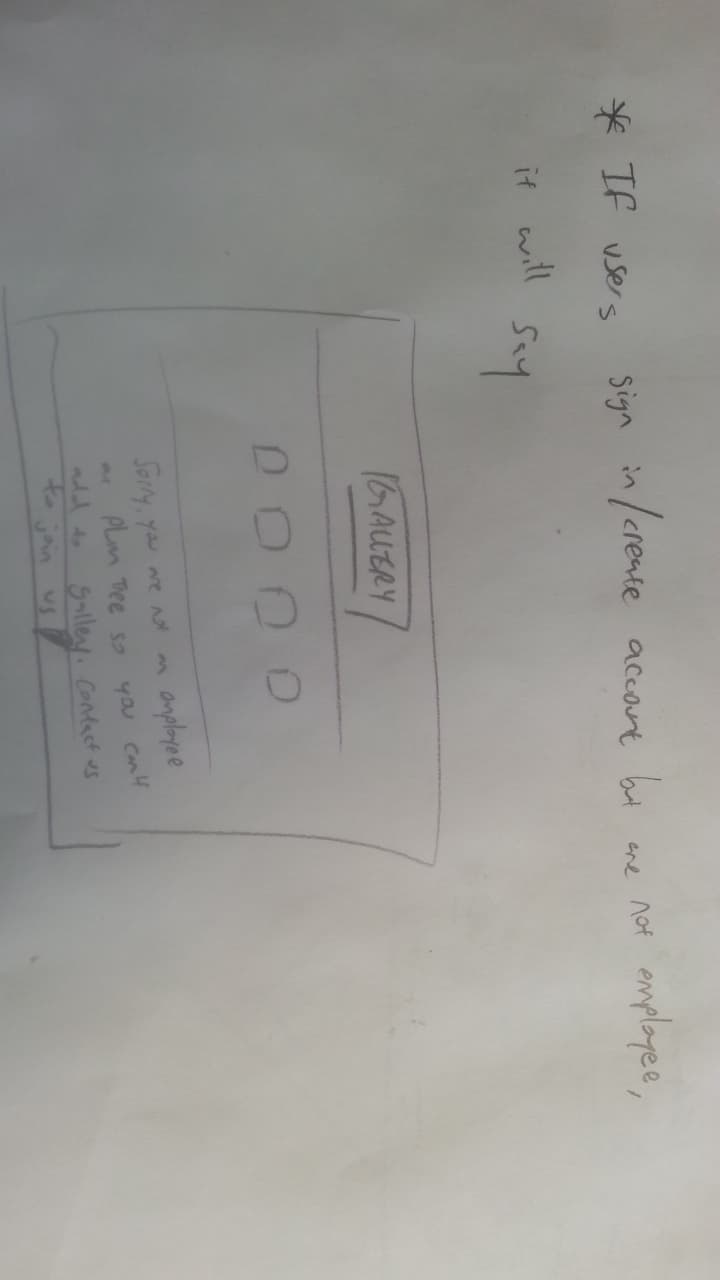 * If users sign in/create account but are not employee,
it will say
GALLERY
Sorry, you are not an employee
at Plan Tree so you can't
add to gallery. Contact us
to join us